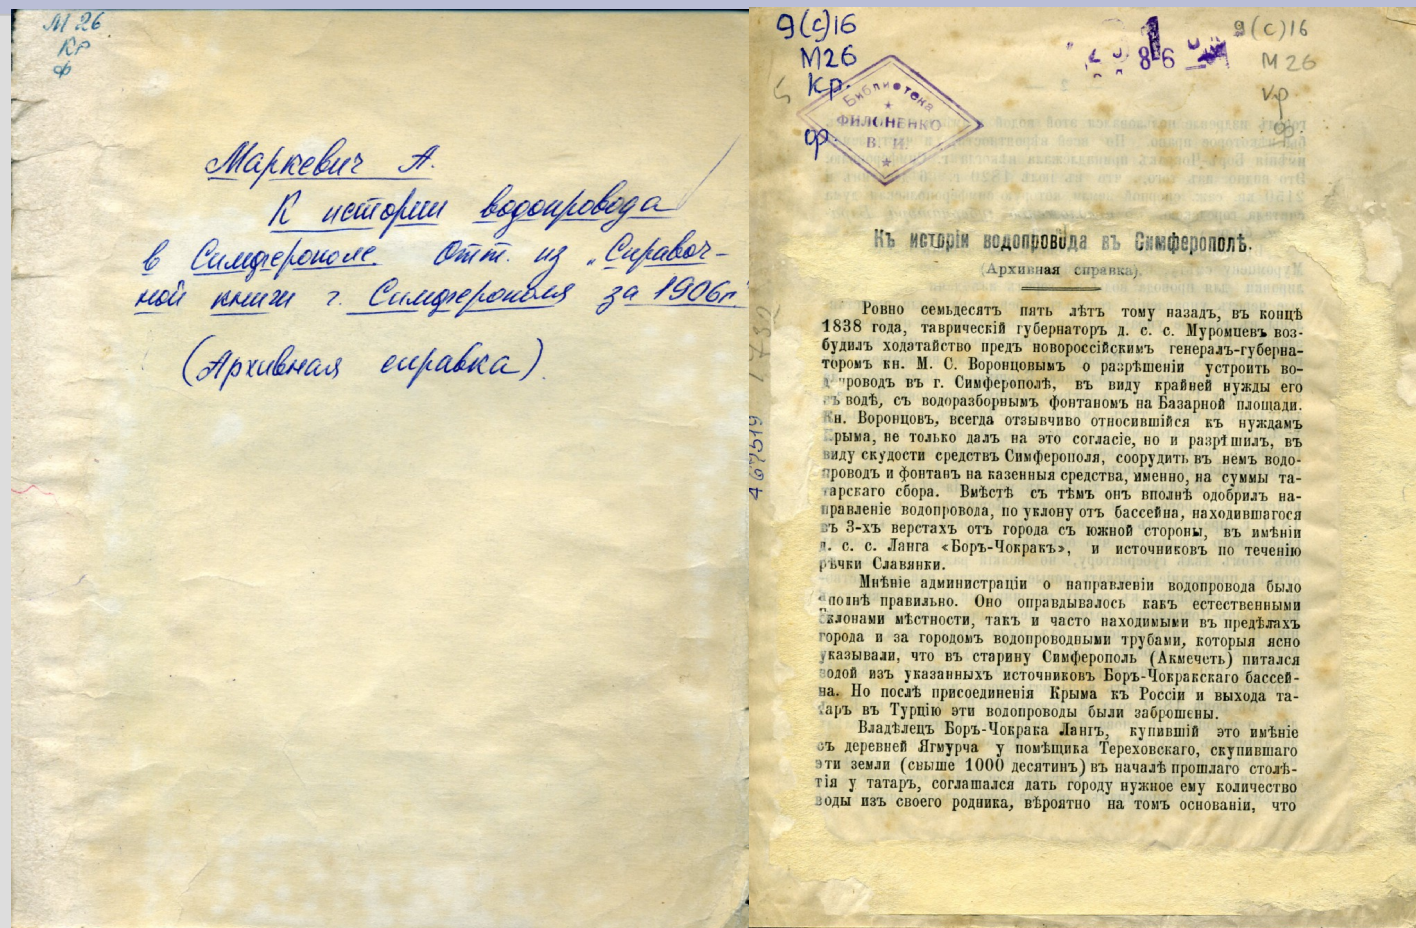 М 26
Кр
ф
Маркевич А.
К истории водопровода
в Симферополе. Отт. из „Справоч-
ной книги г. Симферополя за 1906г."
(Архивная справка).
9(с)16
М26
Кр.
ф.
Библиотека
ФИЛОНЕНКО
В. И.
1
86
9(с)16
М 26
кр
ф.
467519
Къ исторіи водопровода въ Симферополѣ.
(Архивная справка).
Ровно семьдесятъ пять лѣтъ тому назадъ, въ концѣ
1838 года, таврическій губернаторъ д. с. с. Муромцевъ воз-
будилъ ходатайство предъ новороссійскимъ генералъ-губерна-
торомъ кн. М. С. Воронцовымъ о разрѣшеніи устроить во-
допроводъ въ г. Симферополѣ, въ виду крайней нужды его
въ водѣ, съ водоразборнымъ фонтаномъ на Базарной площади.
Кн. Воронцовъ, всегда отзывчиво относившійся къ нуждамъ
Крыма, не только далъ на это согласіе, но и разрѣшилъ, въ
виду скудости средствъ Симферополя, соорудить въ немъ водо-
проводъ и фонтанъ на казенныя средства, именно, на суммы та-
тарскаго сбора. Вмѣстѣ съ тѣмъ онъ вполнѣ одобрилъ на-
правленіе водопровода, по уклону отъ бассейна, находившагося
въ 3-хъ верстахъ отъ города съ южной стороны, въ имѣніи
д. с. с. Ланга «Боръ-Чокракъ», и источниковъ по теченію
рѣчки Славянки.
Мнѣніе администраціи о направленіи водопровода было
вполнѣ правильно. Оно оправдывалось какъ естественными
склонами мѣстности, такъ и часто находимыми въ предѣлахъ
города и за городомъ водопроводными трубами, которыя ясно
указывали, что въ старину Симферополь (Акмечеть) питался
водой изъ указанныхъ источниковъ Боръ-Чокракскаго бассей-
на. Но послѣ присоединенія Крыма къ Россіи и выхода та-
таръ въ Турцію эти водопроводы были заброшены.
Владѣлецъ Боръ-Чокрака Лангъ, купившій это имѣніе
съ деревней Ягмурча у помѣщика Тереховскаго, скупившаго
эти земли (свыше 1000 десятинъ) въ началѣ прошлаго столѣ-
тія у татаръ, соглашался дать городу нужное ему количество
воды изъ своего родника, вѣроятно на томъ основаніи, что